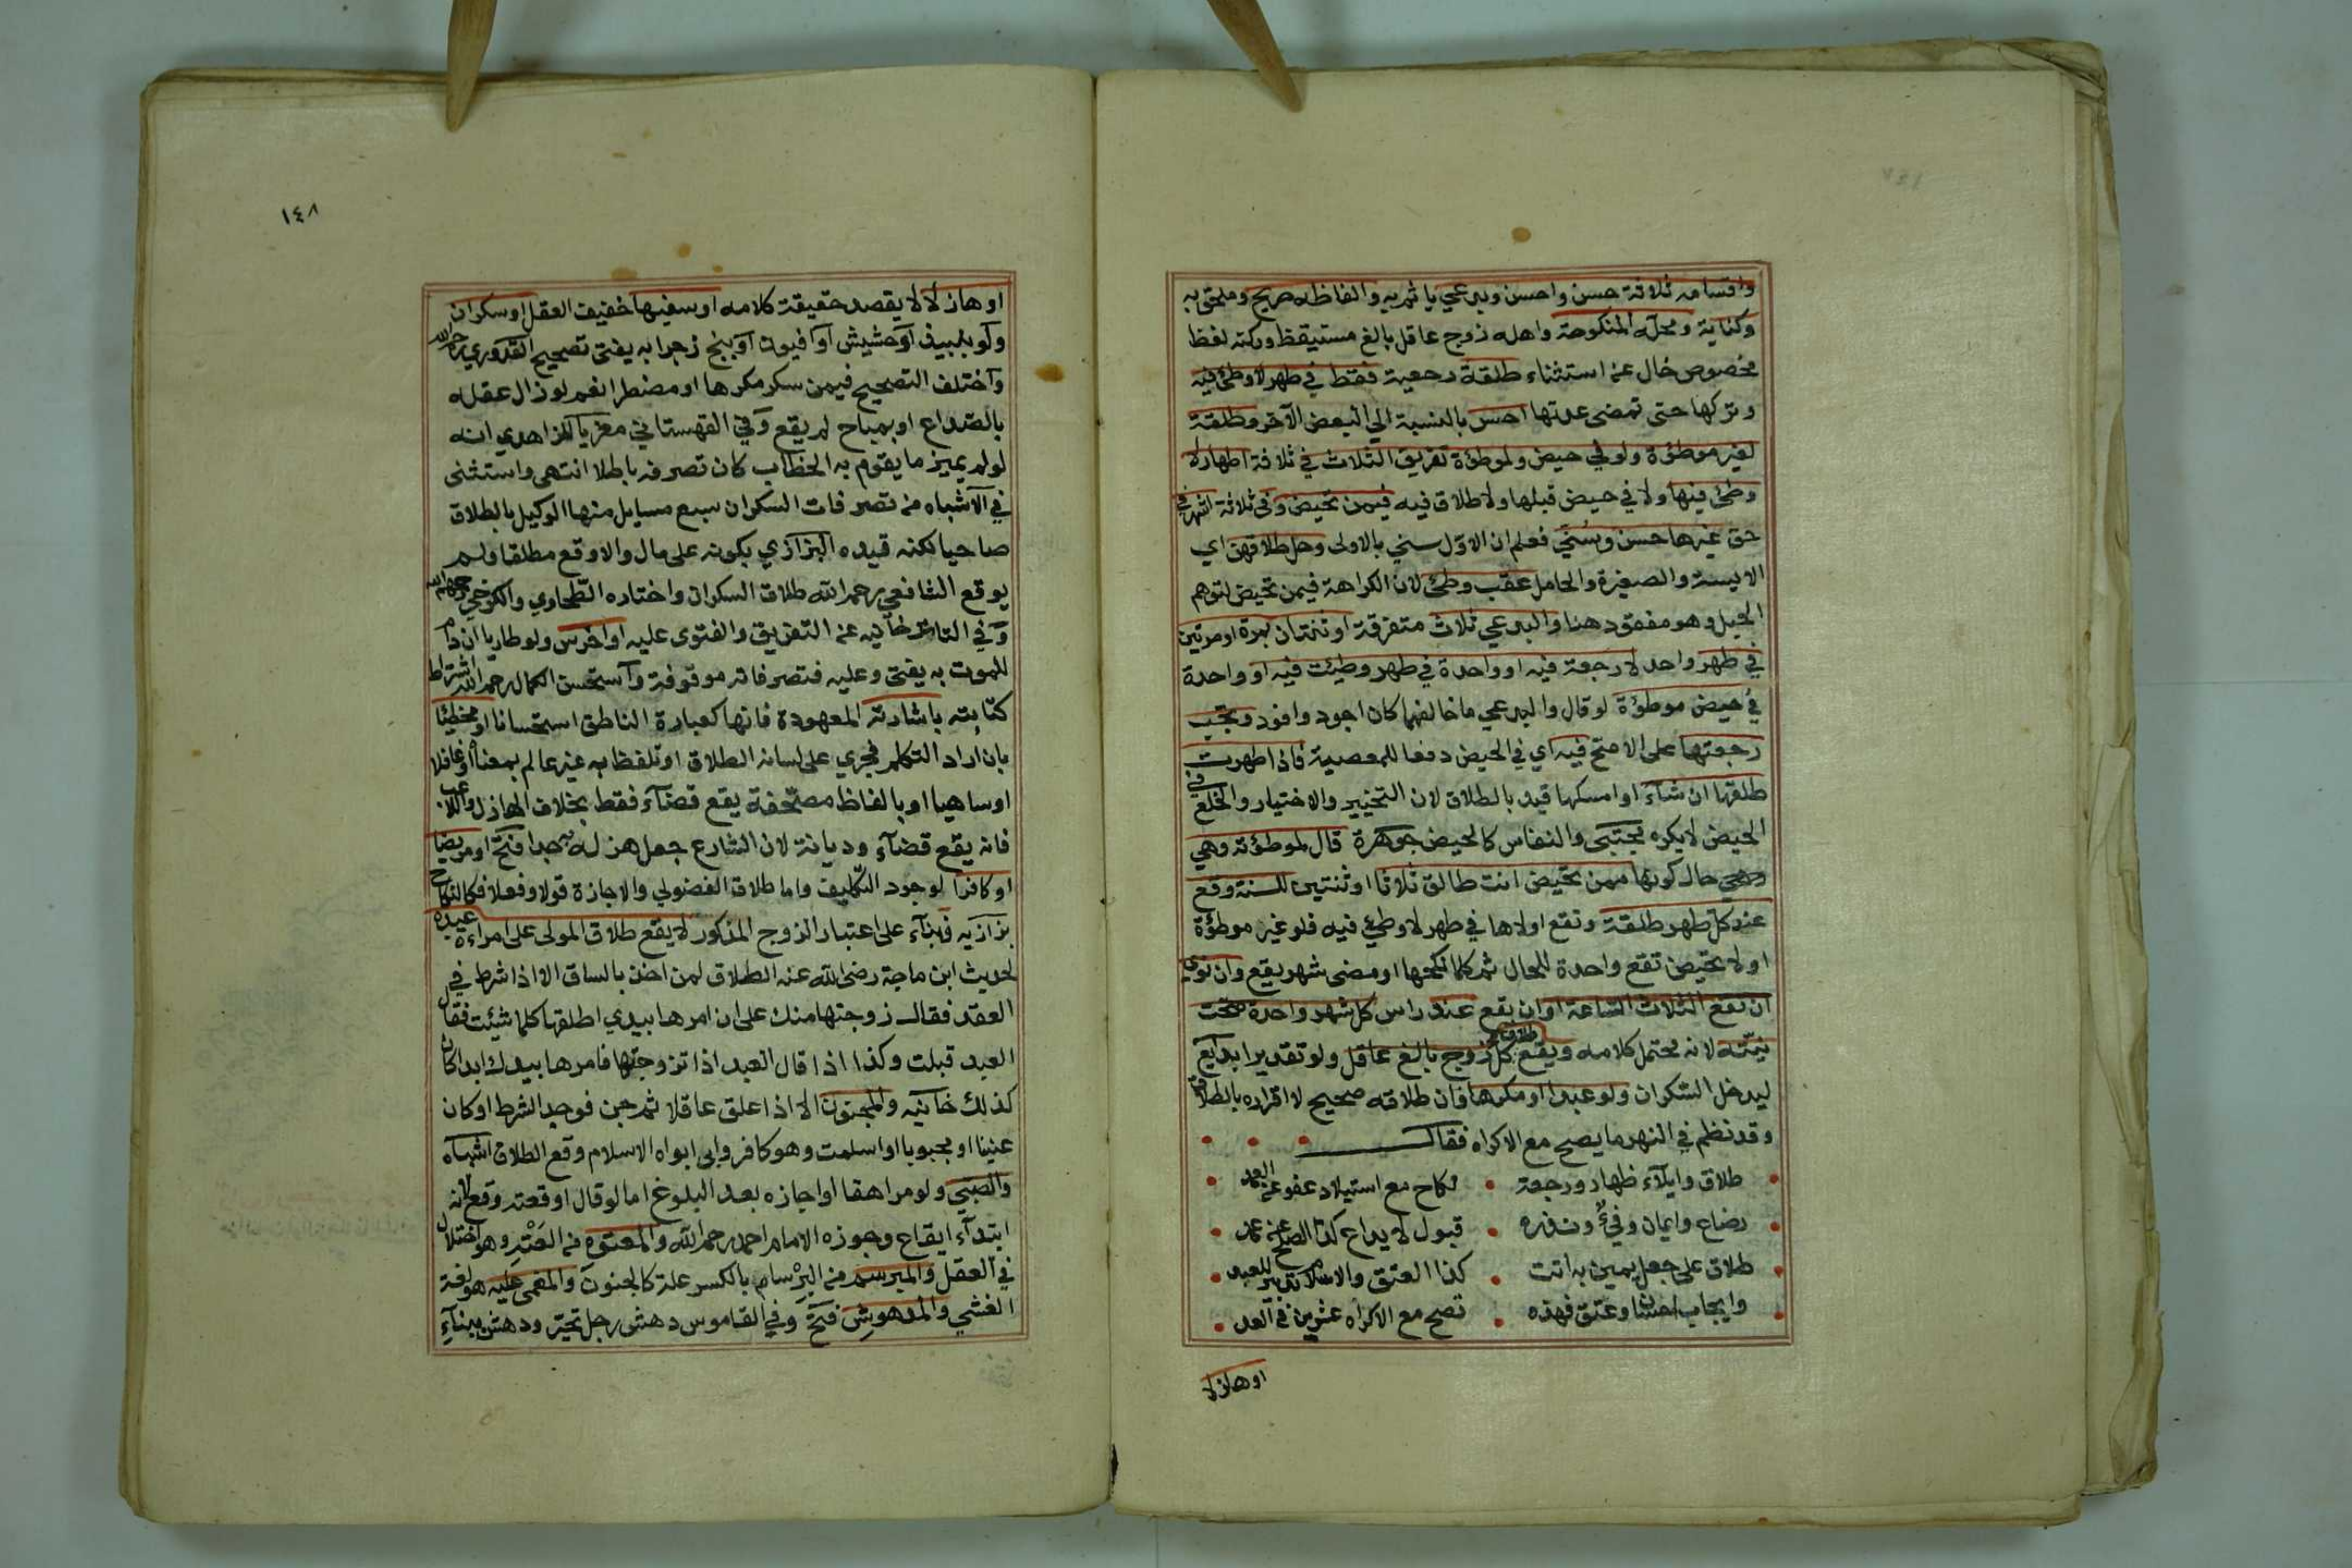 واقسامه ثلاثة حسن واحسن وبدعي ياثم به والفاظه صريح وملحق به
وكناية ومحله المنكوحة واهله زوج عاقل بالغ مستيقظ وركنه لفظ
مخصوص خال عن استثناء طلقة رجعية فقط في طهر لا وطئ فيه
وتركها حتى تمضى عدتها احسن بالنسبة الى البعض الآخر وطلقة
لغير موطؤة ولو في حيض ولموطؤة تفريق الثلاث في ثلاثة اطهار لا
وطئ فيها ولا في حيض قبلها ولا طلاق فيه فيمن تحيض وفي ثلاثة اشهر في
حق غيرها حسن وسني فعلم ان الاول سني بالاولى وحل طلاقهن اي
الايسة والصغيرة والحامل عقب وطئ لان الكراهة فيمن تحيض لتوهم
الحبل وهو مفقود هنا والبدعي ثلاث متفرقة او ثنتان بمرة او مرتين
في طهر واحد لا رجعة فيه او واحدة في طهر وطيئت فيه او واحدة
في حيض موطؤة لو قال والبدعي ما خالفهما كان اجود وافود وتجب
رجعتها على الاصح فيه اي في الحيض دفعا للمعصية فاذا طهرت
طلقها ان شاء او امسكها قيد بالطلاق لان التخيير والاختيار والخلع في
الحيض لا يكره مجتبى والنفاس كالحيض جوهرة قال لموطؤته وهي
وهي حال كونها ممن تحيض انت طالق ثلاثا او ثنتين للسنة وقع
عند كل طهر طلقة وتقع اولاها في طهر لا وطئ فيه فلو غير موطؤة
او لا تحيض تقع واحدة للحال ثم كلما نكحها او مضى شهر يقع وان نوى
ان تقع الثلاث الساعة او ان يقع عند راس كل شهر واحدة صحت
نيته لانه محتمل كلامه ويقع طلاق كل زوج بالغ عاقل ولو تقديرا بدايع
ليدخل السكران ولو عبدا او مكرها فان طلاقه صحيح لا اقراره بالطلاق
وقد نظم في النهر ما يصح مع الاكراه فقال
طلاق وايلاء ظهار ورجعة • نكاح مع استيلاد عفو عن العمد
رضاع وايمان وفئ ونذره • قبول لايداع كذا الصلح عن عمد
طلاق على جعل يمين به اتت • كذا العتق والاسلام تدبير للعبد
وايجاب احسان وعتق فهذه • تصح مع الاكراه عشرين في العد
او هازلا
١٤٨
او هازلا لا يقصد حقيقة كلامه او سفيها خفيف العقل او سكران
ولو بنبيذ او حشيش او افيون او بنج زجرا به يفتى تصحيح القدوري رحمه الله
واختلف التصحيح فيمن سكر مكرها او مضطرا نعم لو زال عقله
بالصداع او بمباح لم يقع وفي القهستاني معزيا للزاهدي انه
لو لم يميز ما يقوم به الخطاب كان تصرفه باطلا انتهى واستثنى
في الاشباه من تصرفات السكران سبع مسايل منها الوكيل بالطلاق
صاحيا لكنه قيده البزازي بكونه على مال والا وقع مطلقا ولم
يوقع الشافعي رحمه الله طلاق السكران واختاره الطحاوي والكرخي رحمهم الله
وفي التاترخانيه عن التفريق والفتوى عليه او اخرس ولو طاريا ان دام
للموت به يفتى وعليه فتصرفاته موقوفة واستحسن الكمال رحمه الله اشتراط
كتابته باشارته المعهودة فانها كعبارة الناطق استحسانا او مخطئا
بان اراد التكلم فجرى على لسانه الطلاق او تلفظ به غير عالم بمعناه او غافلا
او ساهيا او بالفاظ مصحفة يقع قضآء فقط بخلاف الهازل واللاعب
فانه يقع قضآء وديانة لان الشارع جعل هزله به جدا فتح او مريضا
او كافرا لوجود التكليف واما طلاق الفضولي والاجازة قولا وفعلا فكالنكاح
بزازيه فبنآء على اعتبار الزوج المذكور لا يقع طلاق المولى على امراءة عبده
لحديث ابن ماجة رضى الله عنه الطلاق لمن اخذ بالساق الا اذا شرط في
العقد فقال زوجتها منك على ان امرها بيدي اطلقها كلما شيئت فقال
العبد قبلت وكذا اذا قال العبد اذا تزوجتها فامرها بيدك ابدا كان
كذلك خانيه والمجنون الا اذا علق عاقلا ثم جن فوجد الشرط او كان
عنينا او مجبوبا او اسلمت وهو كافر وابى ابواه الاسلام وقع الطلاق اشباه
والصبي ولو مراهقا او اجازه بعد البلوغ اما لو قال اوقعته وقع لانه
ابتدآء ايقاع وجوزه الامام احمد رحمه الله والمعتوه من العته وهو اختلال
في العقل والمبرسم من البرسام بالكسر علة كالجنون والمغمى عليه هو لغة
الغشي والمدهوش فتح وفي القاموس دهش رجل تحير ودهش ببنآء